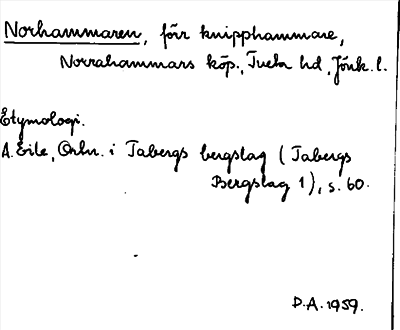 Norhammaren, förr knipphammare,
Norrahammars köp., Tveta hd, Jönk. l.
Etymologi.
A. Eile, Ortn. i Tabergs bergslag (Tabergs
Bergslag 1), s. 60.
D.A. 1959.